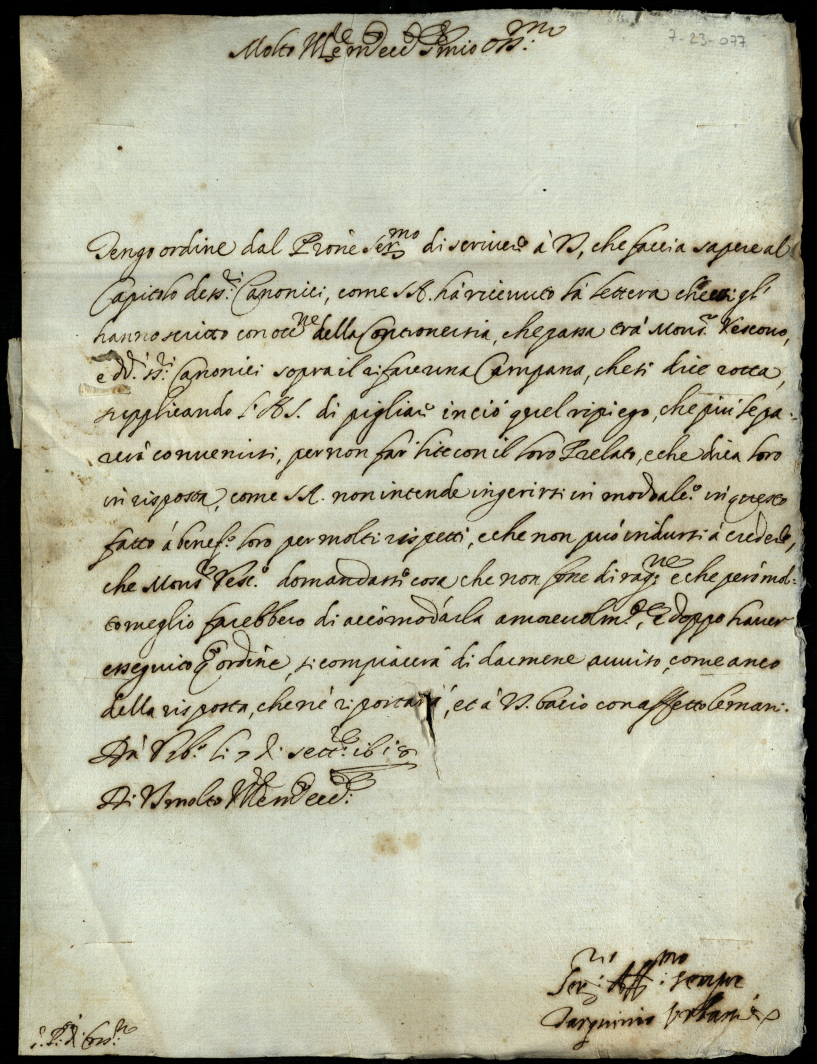 Molto Ill.re et Ecc.te S.r mio Oss.mo
7-23-077
Tengo ordine dal Prone Ser.mo di scrivere à V.S, che faccia sapere al
Capitolo de ss.ri Canonici, come S.A. hà ricevuto la lettera che gl'
hanno scritto con occ.ne della Controversia, che passa trà Mons.r Vescovo,
e dd.i ss.ri Canonici sopra il rifare una Campana, che si dice rotta,
supplicando S.A.S. di pigliare in ciò quel ripiego, che più le pa-
rerà convenirsi, per non far lite con il loro Prelato, e che dica loro
in risposta, come S.A. non intende ingerirsi in modo alc.o in questo
fatto à benef.o loro per molti rispetti, e che non può indursi à credere,
che Mons.r Vesc.o domandasse cosa che non fosse di rag.ne e che però mol-
to meglio farebbero di accomodarla amorevolm.te, E doppo haver
esseguito q.o ordine, si compiacerà di darmene avviso, come anco
della risposta, che nè riporterà, et à V.S. bacio con affetto le mani.
Da Urb.o li 7 di sett.re 1618
Di V.S molto Ill.re et Ecc.te
Ser.re Aff.mo sempre
Tarquinio Urbani